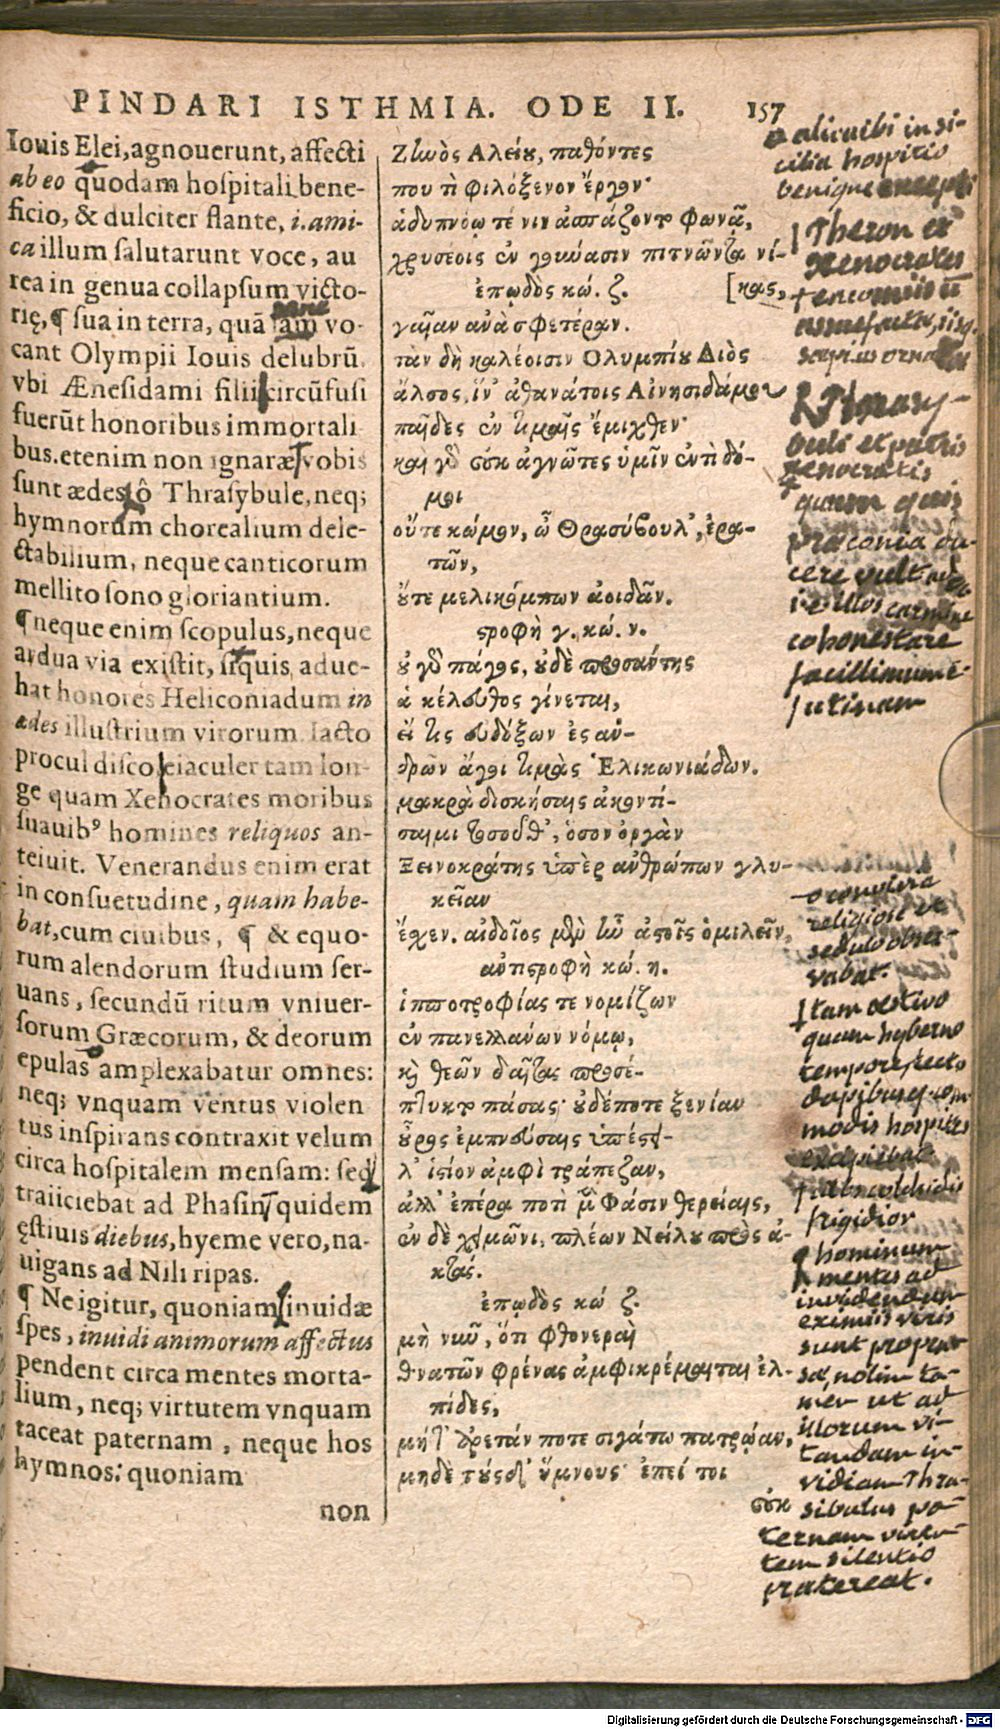 PINDARI ISTHMIA. ODE II. 157
Iouis Elei, agnouerunt, affecti
ab eo quodam hospitali bene-
ficio, & dulciter flante, i. ami-
ca illum salutarunt voce, au
rea in genua collapsum victo-
rię, ¶ sua in terra, quā vo-
cant Olympii Iouis delubrū.
vbi Ænesidami filii circūfusi
fuerūt honoribus immortali
bus. etenim non ignaræ vobis
sunt ædes ô Thrasybule, neq;
hymnorum chorealium dele-
ctabilium, neque canticorum
mellito sono gloriantium.
¶ neque enim scopulus, neque
ardua via existit, si quis adue-
hat honores Heliconiadum in
ædes illustrium virorum. Iacto
procul disco eiaculer tam lon-
ge quam Xenocrates moribus
suauib⁹ homines reliquos an-
teiuit. Venerandus enim erat
in consuetudine, quam habe-
bat, cum ciuibus, ¶ & equo-
rum alendorum studium ser-
uans, secundū ritum vniuer-
sorum Græcorum, & deorum
epulas amplexabatur omnes:
neq; vnquam ventus violen
tus inspirans contraxit velum
circa hospitalem mensam: sed
traiiciebat ad Phasin quidem
ęstiuis diebus, hyeme vero, na-
uigans ad Nili ripas.
¶ Ne igitur, quoniam inuidæ
spes, inuidi animorum affectus
pendent circa mentes morta-
lium, neq; virtutem vnquam
taceat paternam, neque hos
hymnos: quoniam
non
Ζἰωὸς Ἀλείου, παθόντες
που τὶ φιλόξενον ἔργον·
ἁδυπνόῳ τέ νιν ἀσπάζοντο φωνᾷ,
χρυσέοις ἐν γούνασιν πιτνῶντα νί-
ἐπωδὸς κώ. ζ. [κας,
γαῖαν ἀνὰ σφετέραν.
τὰν δὴ καλέοισιν Ὀλυμπίου Διὸς
ἄλσος, ἵν' ἀθανάτοις Αἰνησιδάμου
παῖδες ἐν τιμαῖς ἔμιχθεν·
καὶ γὸ οὐκ ἀγνῶτες ὑμῖν ἐντὶ δό-
μοι
οὔτε κώμων, ὦ Θρασύβουλ', ἐρα-
τῶν,
οὔτε μελικόμπων ἀοιδᾶν.
στροφὴ γ. κώ. ν.
οὐ γὸ πάγος, οὐδὲ προσάντης
ἁ κέλευθος γίνεται,
εἴ τις εὐδόξων ἐς ἀν-
δρῶν ἄγοι τιμὰς Ἑλικωνιάδων.
μακρὰ δισκήσαις ἀκοντί-
σαιμι τοσοῦθ', ὅσον ὀργὰν
Ξεινοκράτης ὑπὲρ ἀνθρώπων γλυ-
κεῖαν
ἔσχεν. αἰδοῖος μὲν ἦν ἀστοῖς ὁμιλεῖν,
ἀντιστροφὴ κώ. η.
ἱπποτροφίας τε νομίζων
ἐν πανελλάνων νόμῳ,
κὶ θεῶν δαῖτας προσέ-
πτυκτο πάσας· οὐδέποτε ξενίαν
οὖρος ἐμπνεύσαις ὑπέστει-
λ' ἱστίον ἀμφὶ τράπεζαν,
ἀλλ' ἐπέρα ποτὶ μὲν Φάσιν θερείαις,
ἐν δὲ χειμῶνι, πλέων Νείλου πρὸς ἀ-
κτάς.
ἐπωδὸς κώ ζ.
μὴ νυν, ὅτι φθονεραὶ
θνατῶν φρένας ἀμφικρέμανται ἐλ-
πίδες,
μήτ' ἀρετάν ποτε σιγάτω πατρῴαν,
μηδὲ τούσδ' ὕμνους· ἐπεί τοι
οὐκ
alicubi in si-
cilia hospitio
benigne excepti
Theron et
Xenocrates
ouli et patris
Xenocratis
quem quis
præconia du-
cere vult
illos carmine
cohonestare
facillimum é
utinam
o conuiuia
religiose et
sedulo obser-
vabat.
tam æstiuo
quam hyberno
tempore, lecto
dapibusq; com
modis hospites
excipiebat
frigidior
hominum
mentes ad
inuidendum
eximiis viris
sunt propen
sæ, nolim ta-
men ut ad
illorum vi-
tandam in-
vidiam Thra-
sibulus pa-
ternam virtu-
tem silentio
prætereat.
Digitalisierung gefördert durch die Deutsche Forschungsgemeinschaft - DFG